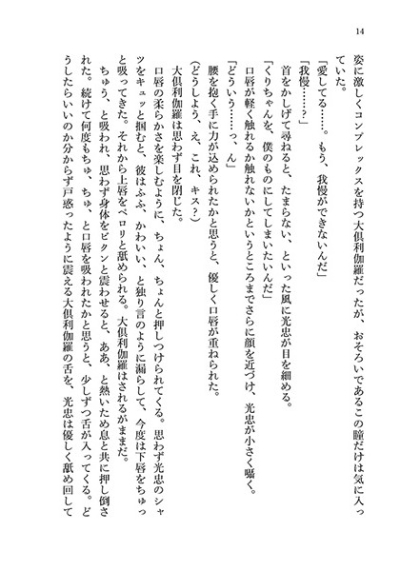 14
姿に激しくコンプレックスを持つ大倶利伽羅だったが、おそろいであるこの瞳だけは気に入っ
ていた。
「愛してる……。もう、我慢ができないんだ」
「我慢……？」
首をかしげて尋ねると、たまらない、といった風に光忠が目を細める。
「くりちゃんを、僕のものにしてしまいたいんだ」
口唇が軽く触れるか触れないかというところまでさらに顔を近づけ、光忠が小さく囁く。
「どういう……っ、ん」
腰を抱く手に力が込められたかと思うと、優しく口唇が重ねられた。
（どうしよう、え、これ、キス？）
大倶利伽羅は思わず目を閉じた。
口唇の柔らかさを楽しむように、ちょん、ちょんと押しつけられてくる。思わず光忠のシャ
ツをキュッと掴むと、彼はふふ、かわいい、と独り言のように漏らして、今度は下唇をちゅっ
と吸ってきた。それから上唇をペロリと舐められる。大倶利伽羅はされるがままだ。
ちゅう、と吸われ、思わず身体をビクンと震わせると、ああ、と熱いため息と共に押し倒さ
れた。続けて何度もちゅ、ちゅ、と口唇を吸われたかと思うと、少しずつ舌が入ってくる。ど
うしたらいいのか分からず戸惑ったように震える大倶利伽羅の舌を、光忠は優しく舐め回して